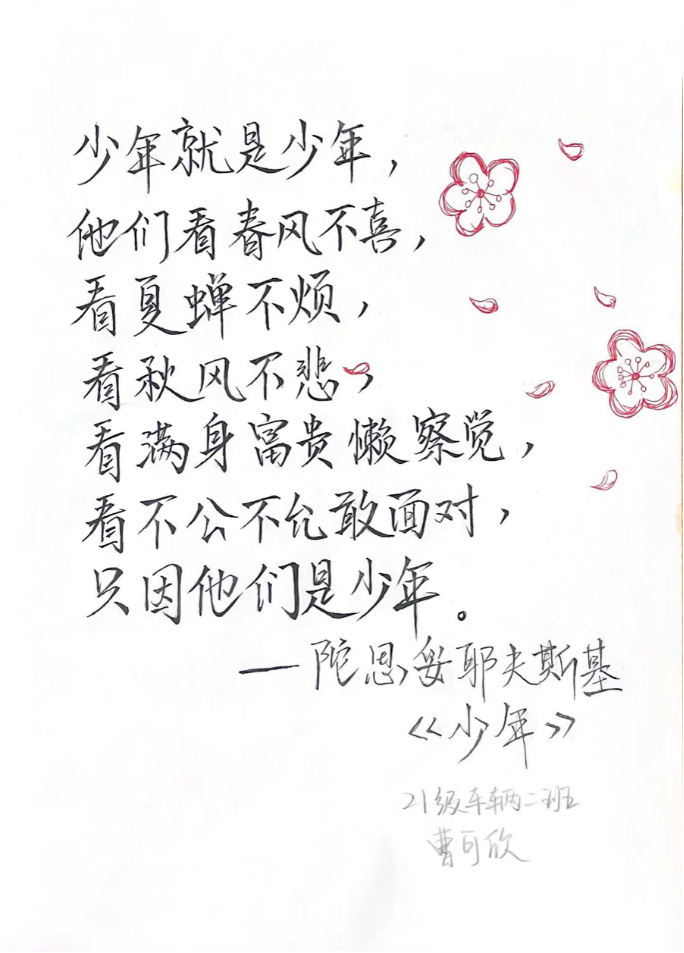 少年就是少年，
他们看春风不喜，
看夏蝉不烦，
看秋风不悲，
看满身富贵懒察觉，
看不公不允敢面对，
只因他们是少年。
——陀思妥耶夫斯基
《少年》
21级车辆二班
曹可欣